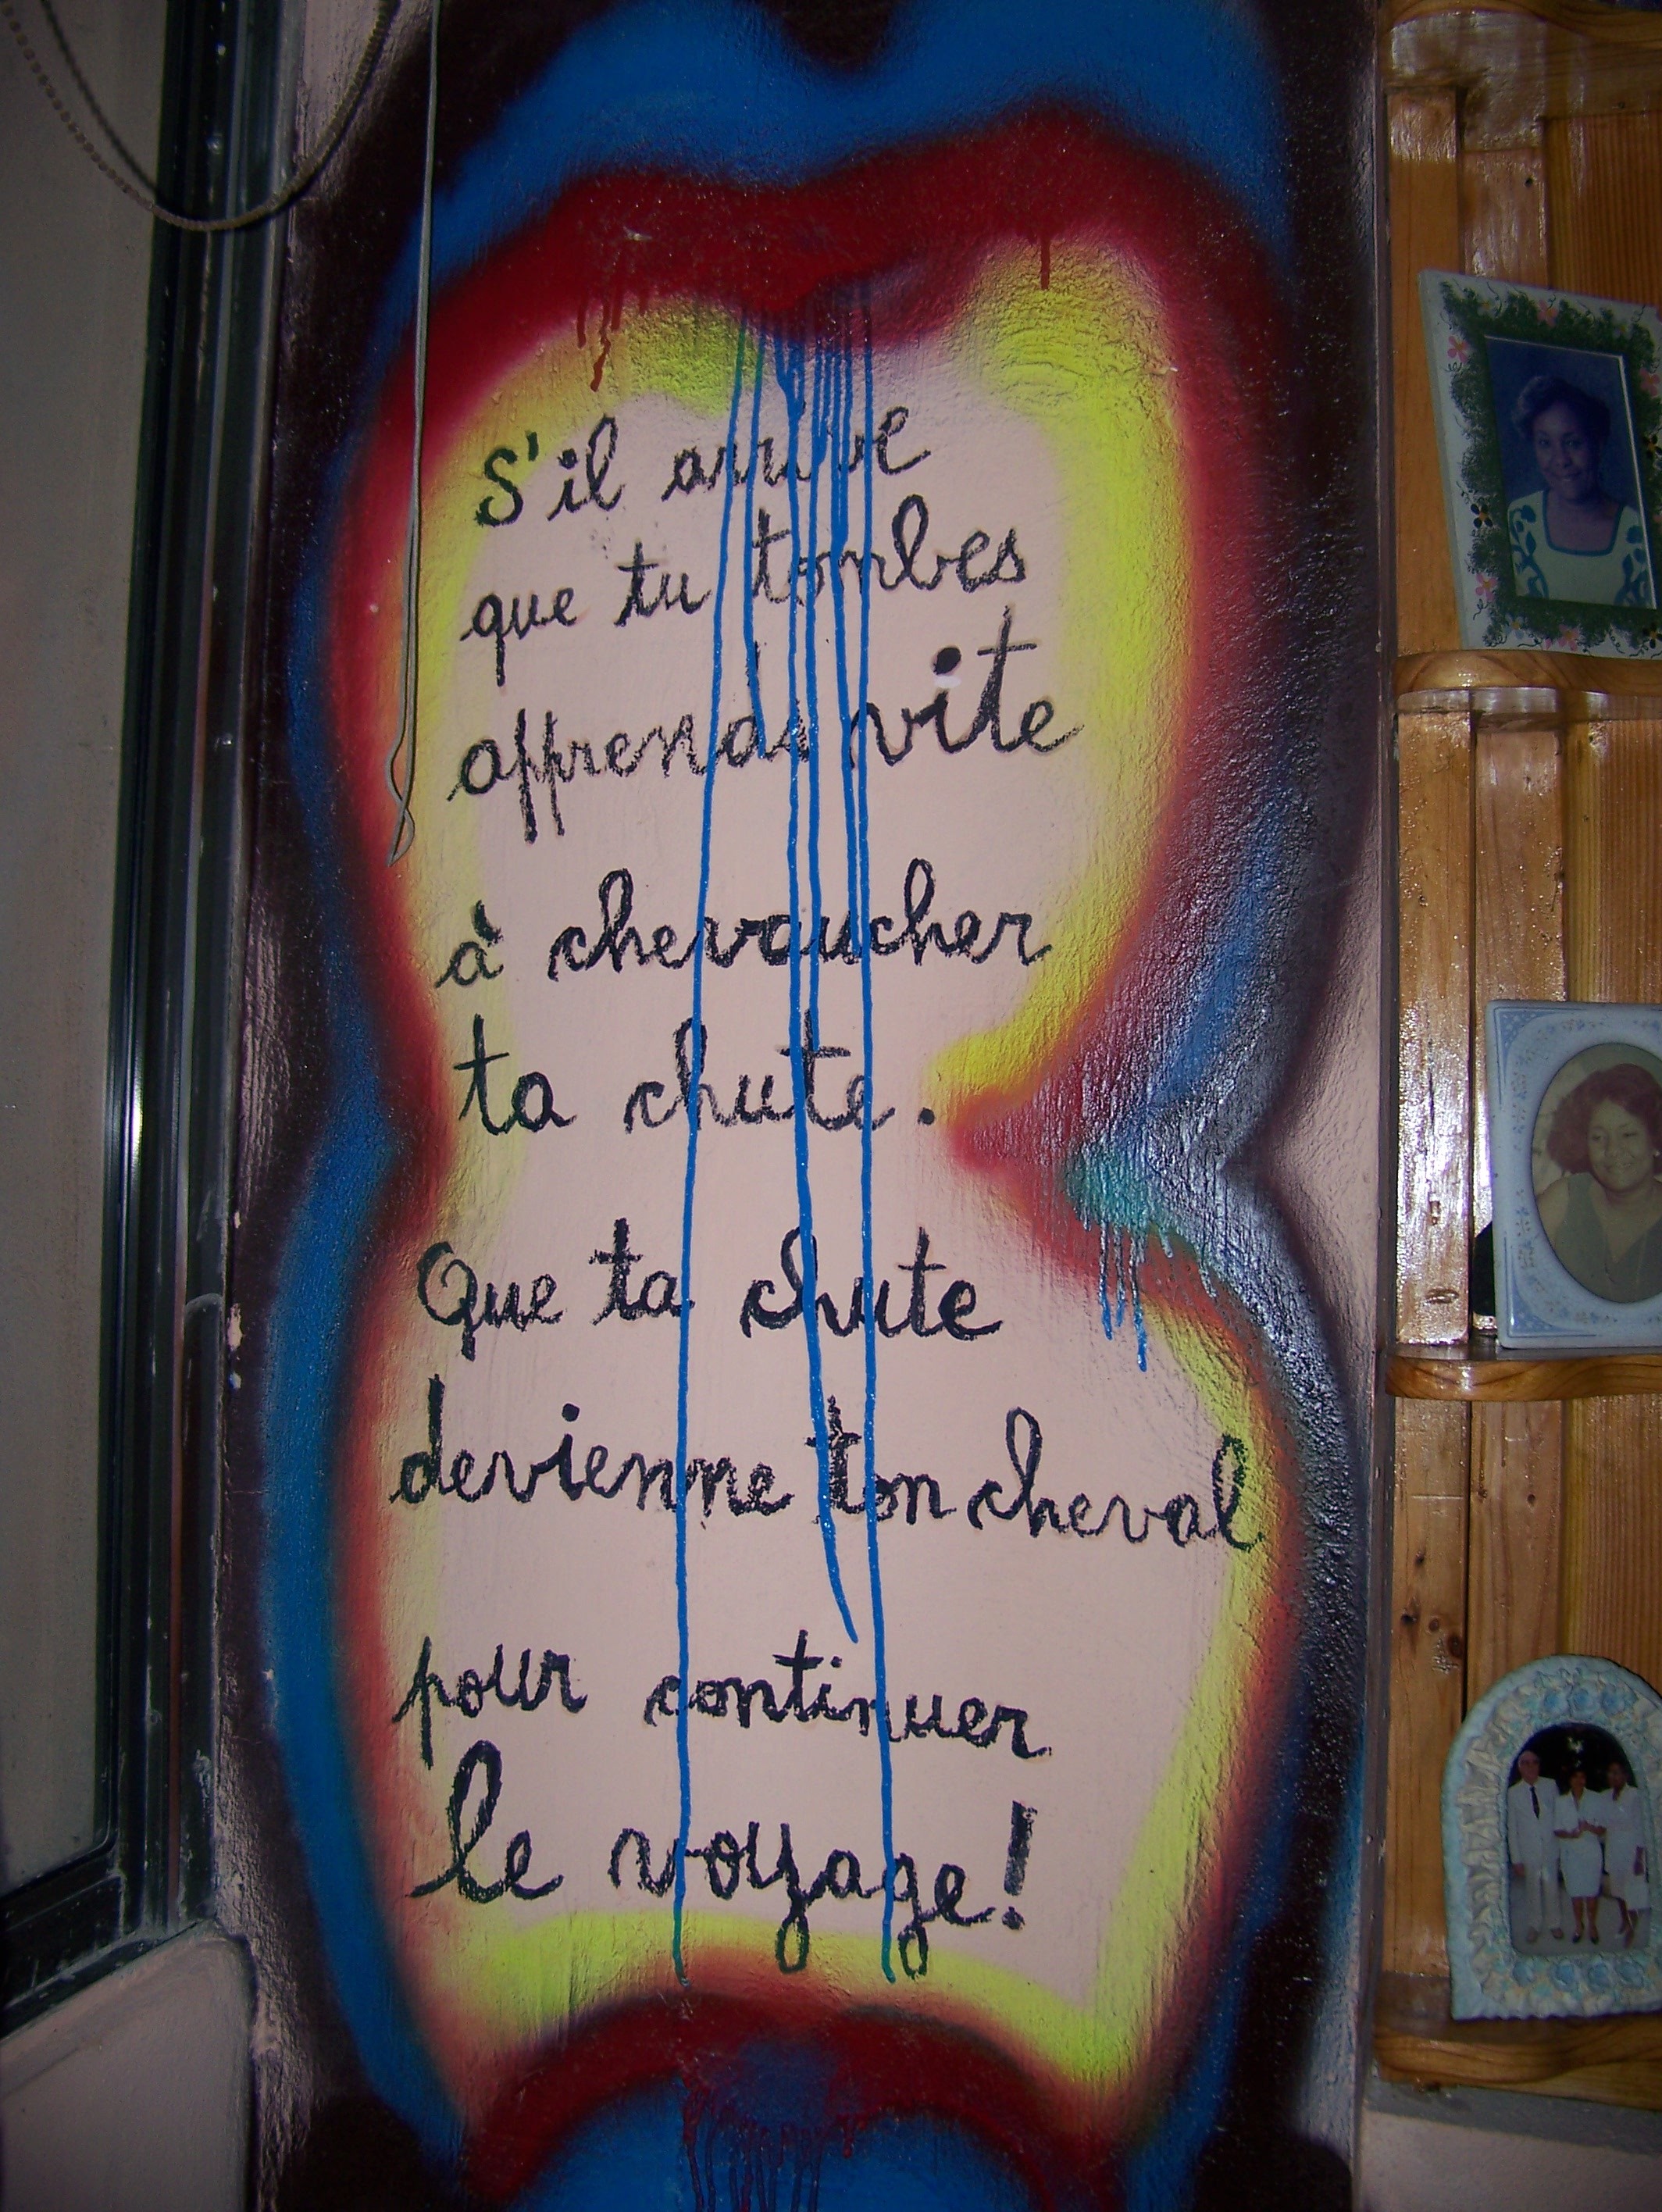 S'il arrive
que tu tombes
apprends vite
à chevaucher
ta chute.
Que ta chute
devienne ton cheval
pour continuer
le voyage!